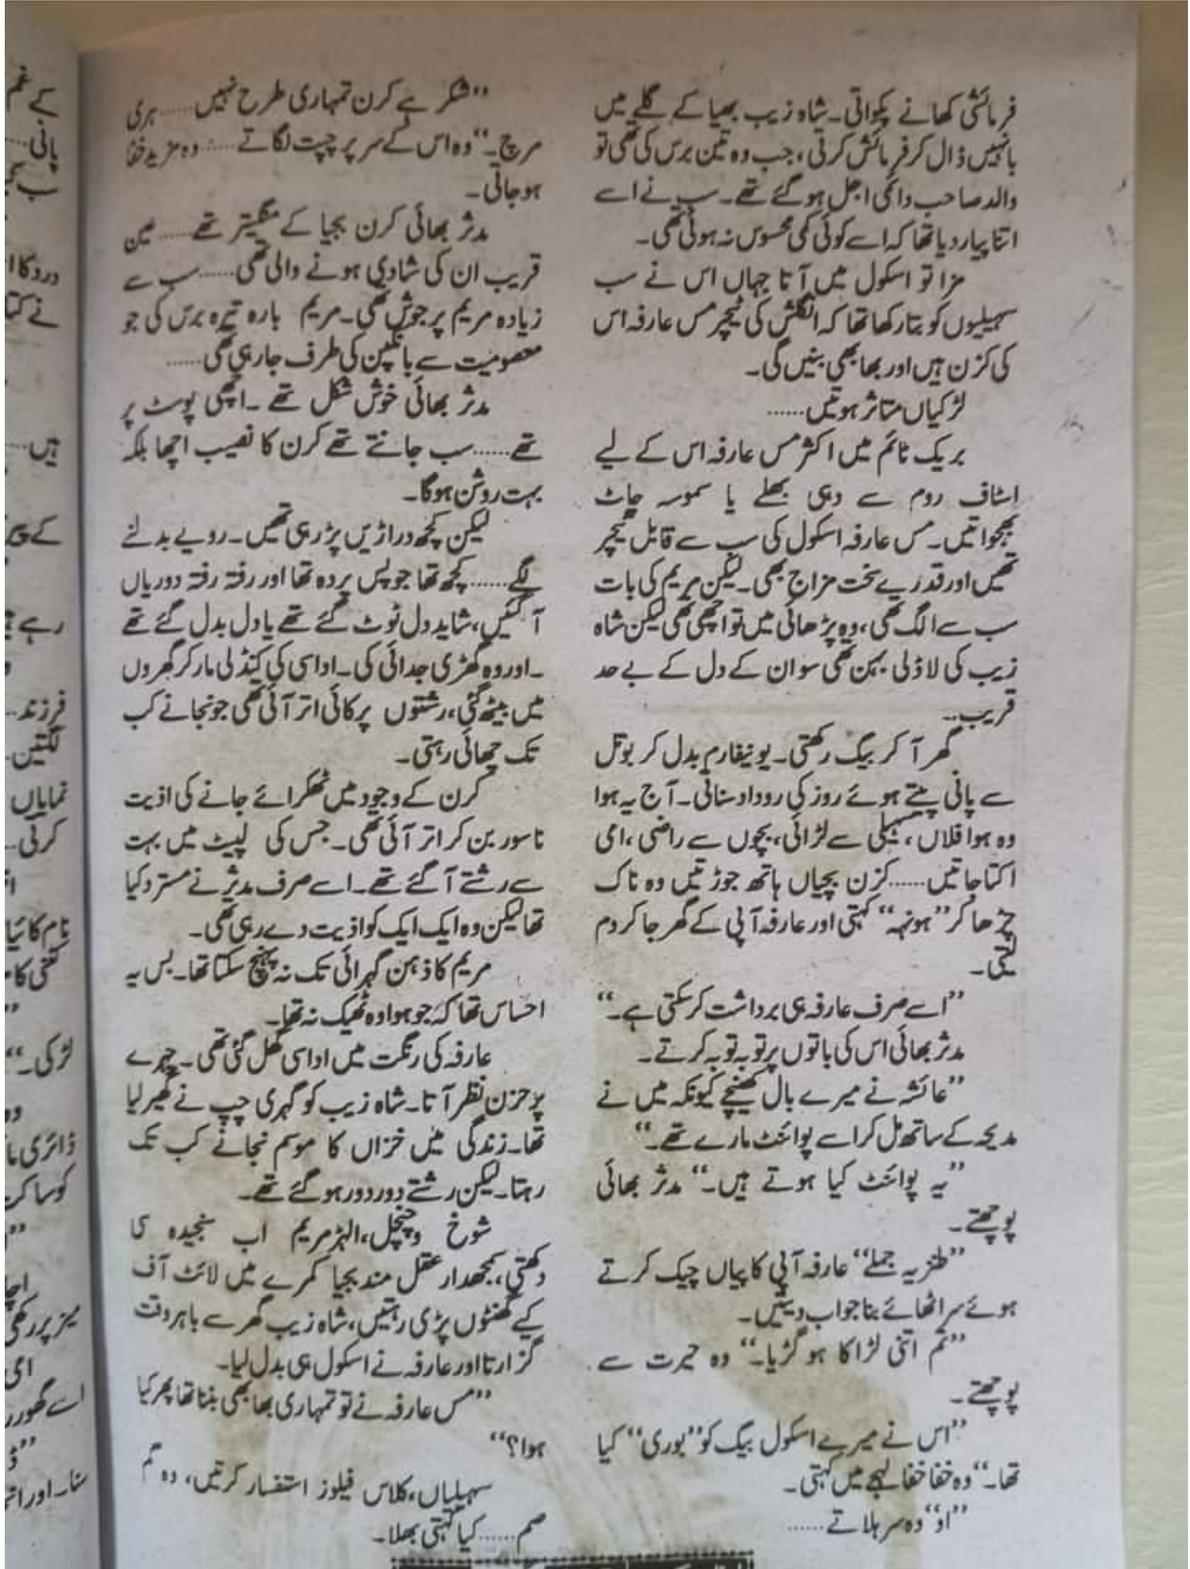 فرمائشی کھانے پکواتی۔ شاہ زیب بھیا کے گلے میں
بانہیں ڈال کر فرمائش کرتی، جب وہ تین برس کی تھی تو
والد صاحب داعی اجل ہوگئے تھے۔ سب نے اسے
اتنا پیار دیا تھا کہ اسے کوئی کمی محسوس نہ ہوئی تھی۔
مزا تو اسکول میں آتا جہاں اس نے سب
سہیلیوں کو بتا رکھا تھا کہ انگلش کی ٹیچر مس عارفہ اس
کی کزن ہیں اور بھابھی بنیں گی۔
لڑکیاں متاثر ہوتیں......
بریک ٹائم میں اکثر مس عارفہ اس کے لیے
اسٹاف روم سے دہی بھلے یا سموسہ چاٹ
بھجواتیں۔ مس عارفہ اسکول کی سب سے قابل ٹیچر
تھیں اور قدرے سخت مزاج بھی۔ لیکن مریم کی بات
سب سے الگ تھی، وہ پڑھائی میں تو اچھی تھی لیکن شاہ
زیب کی لاڈلی بہن تھی سو ان کے دل کے بے حد
قریب..
گھر آ کر بیگ رکھتی۔ یونیفارم بدل کر بوتل
سے پانی پیتے ہوئے روز کی روداد سناتی۔ آج یہ ہوا
وہ ہوا فلاں سہیلی سے لڑائی، بچوں سے راضی، امی
اکتا جاتیں...... کزن بچیاں ہاتھ جوڑتیں وہ ناک
چڑھا کر ”ہونہہ“ کہتی اور عارفہ آپی کے گھر جا کر دم
لیتی۔
”اسے صرف عارفہ ہی برداشت کرسکتی ہے۔“
مدثر بھائی اس کی باتوں پر توبہ توبہ کرتے۔
”عائشہ نے میرے بال کھینچے کیونکہ میں نے
مدیحہ کے ساتھ مل کر اسے پوائنٹ مارے تھے۔“
”یہ پوائنٹ کیا ہوتے ہیں۔“ مدثر بھائی
پوچھتے۔
”طنزیہ جملے“ عارفہ آپی کاپیاں چیک کرتے
ہوئے سر اٹھائے بنا جواب دیتیں۔
”تم اتنی لڑاکا ہو گڑیا۔“ وہ حیرت سے
پوچھتے۔
”اس نے میرے اسکول بیگ کو ”بوری“ کہا
تھا۔“ وہ خفا خفا لہجے میں کہتی۔
”او“ وہ سر ہلاتے......
”شکر ہے کرن تمہاری طرح نہیں...... ہری
مرچ۔“ وہ اس کے سر پر چپت لگاتے...... وہ مزید خفا
ہوجاتی۔
مدثر بھائی کرن بجیا کے منگیتر تھے...... عین
قریب ان کی شادی ہونے والی تھی...... سب سے
زیادہ مریم پرجوش تھی۔ مریم بارہ تیرہ برس کی جو
معصومیت سے بانکپن کی طرف جارہی تھی......
مدثر بھائی خوش شکل تھے۔ اچھی پوسٹ پر
تھے...... سب جانتے تھے کرن کا نصیب اچھا بلکہ
بہت روشن ہوگا۔
لیکن کچھ دراڑیں پڑ رہی تھیں۔ رویے بدلنے
لگے...... کچھ تھا جو پس پردہ تھا اور رفتہ رفتہ دوریاں
آ گئیں، شاید دل ٹوٹ گئے تھے یا دل بدل گئے تھے
۔اور وہ گھڑی جدائی کی۔ اداسی کی کنڈلی مار کر گھروں
میں بیٹھ گئی، رشتوں پر کائی اتر آئی تھی جو نجانے کب
تک چھائی رہتی۔
کرن کے وجود میں ٹھکرائے جانے کی اذیت
ناسور بن کر اتر آئی تھی۔ جس کی لپیٹ میں بہت
سے رشتے آ گئے تھے۔ اسے صرف مدثر نے مسترد کیا
تھا لیکن وہ ایک ایک کو اذیت دے رہی تھی۔
مریم کا ذہن گہرائی تک نہ پہنچ سکتا تھا۔ بس یہ
احساس تھا کہ جو ہوا وہ ٹھیک نہ تھا۔
عارفہ کی رنگت میں اداسی گھل گئی تھی۔ چہرے
پر حزن نظر آتا۔ شاہ زیب کو گہری چپ نے گھیر لیا
تھا۔ زندگی میں خزاں کا موسم نجانے کب تک
رہتا۔ لیکن رشتے دور دور ہوگئے تھے۔
شوخ و چنچل، الہڑ مریم اب سنجیدہ سی
دکھتی، سمجھدار عقل مند بجیا کمرے میں لائٹ آف
کیے گھنٹوں پڑی رہتیں، شاہ زیب گھر سے باہر وقت
گزارتا اور عارفہ نے اسکول ہی بدل لیا۔
”مس عارفہ نے تو تمہاری بھابھی بننا تھا پھر کیا
ہوا؟“
سہیلیاں، کلاس فیلوز استفسار کرتیں، وہ گم
صم...... کیا کہتی بھلا۔
کے غم
پانی....
ہیں....
فرزند..
نمایاں
کرتی..
لڑکی۔“
میز پر رکھی
امی